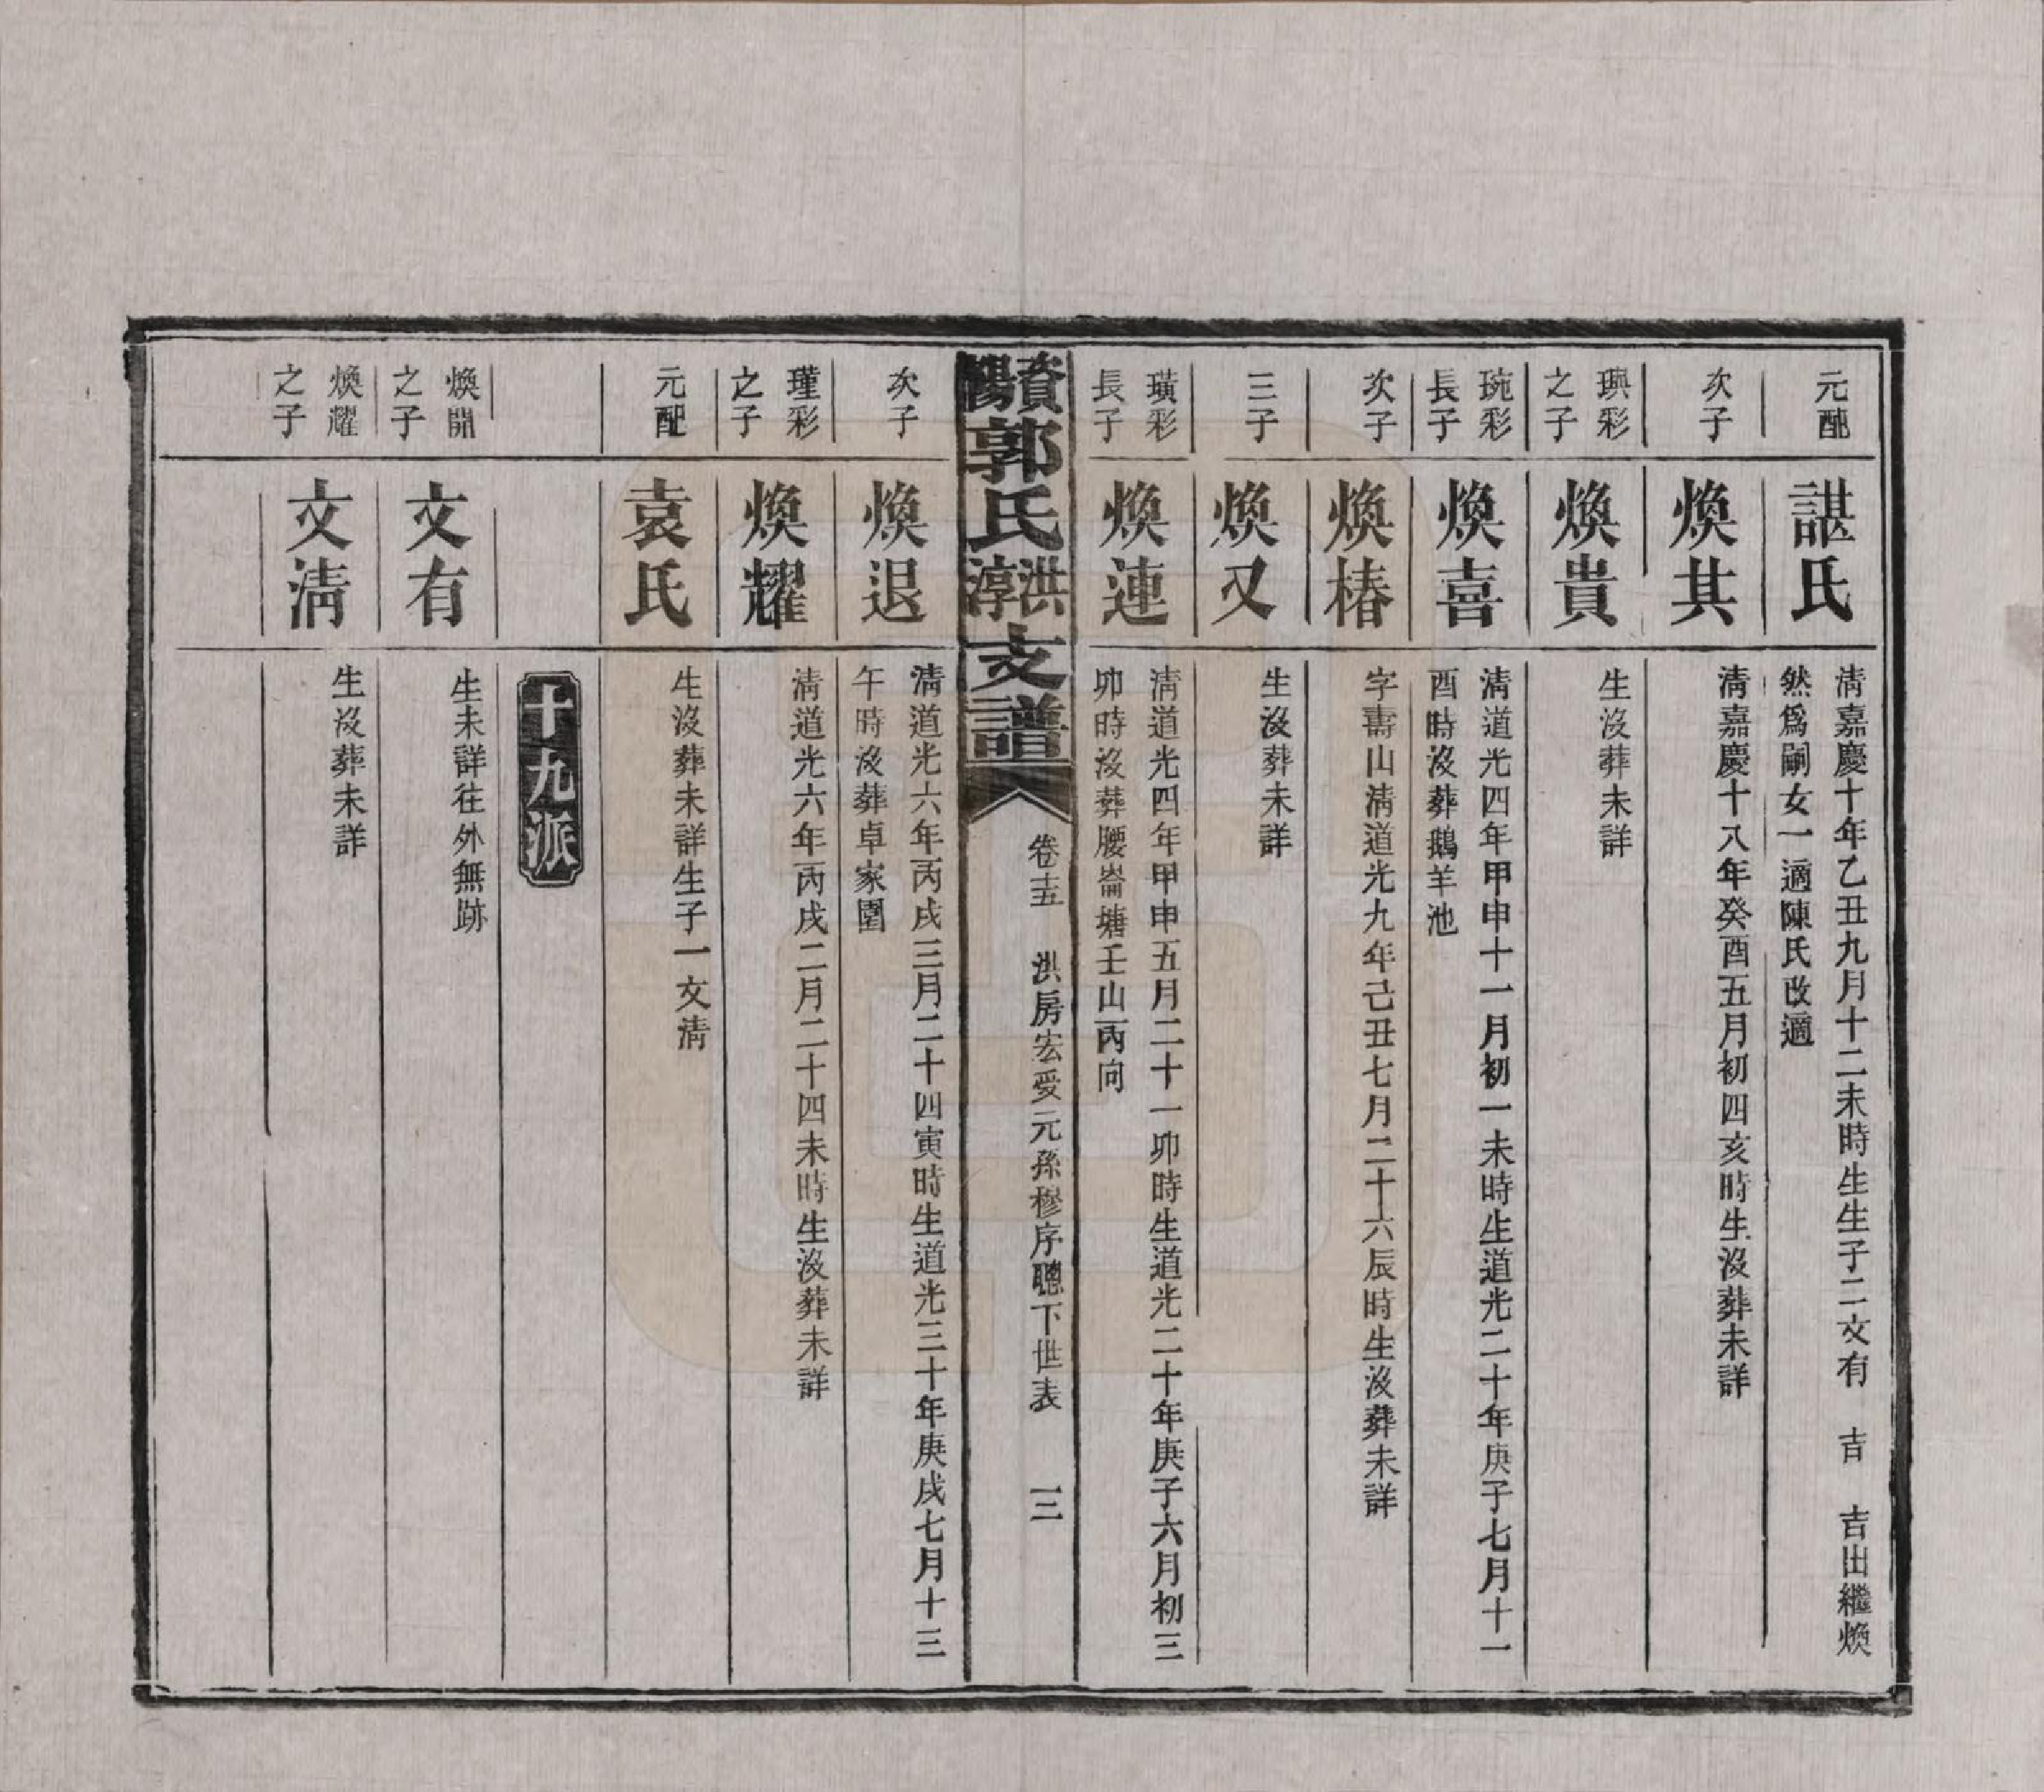 元配
諶氏
清嘉慶十年乙丑九月十二未時生生子二文有　吉　吉出繼煥
然爲嗣女一適陳氏改適
次子
煥其
清嘉慶十八年癸酉五月初四亥時生沒葬未詳
璵彩
之子
煥貴
生沒葬未詳
琬彩
長子
煥喜
清道光四年甲申十一月初一未時生道光二十年庚子七月十一
酉時沒葬鵝羊池
次子
煥椿
字壽山清道光九年己丑七月二十六辰時生沒葬未詳
三子
煥又
生沒葬未詳
璜彩
長子
煥連
清道光四年甲申五月二十一卯時生道光二十年庚子六月初三
卯時沒葬腰崙塘壬山丙向
資陽郭氏洪淳支譜
卷十五　洪房宏受元孫穆序聰下世表　三
次子
煥退
清道光六年丙戌三月二十四寅時生道光三十年庚戌七月十三
午時沒葬卓家園
瑾彩
之子
煥耀
清道光六年丙戌二月二十四未時生沒葬未詳
元配
袁氏
生沒葬未詳生子一文清
十九派
煥開
之子
文有
生未詳往外無跡
煥耀
之子
文清
生沒葬未詳